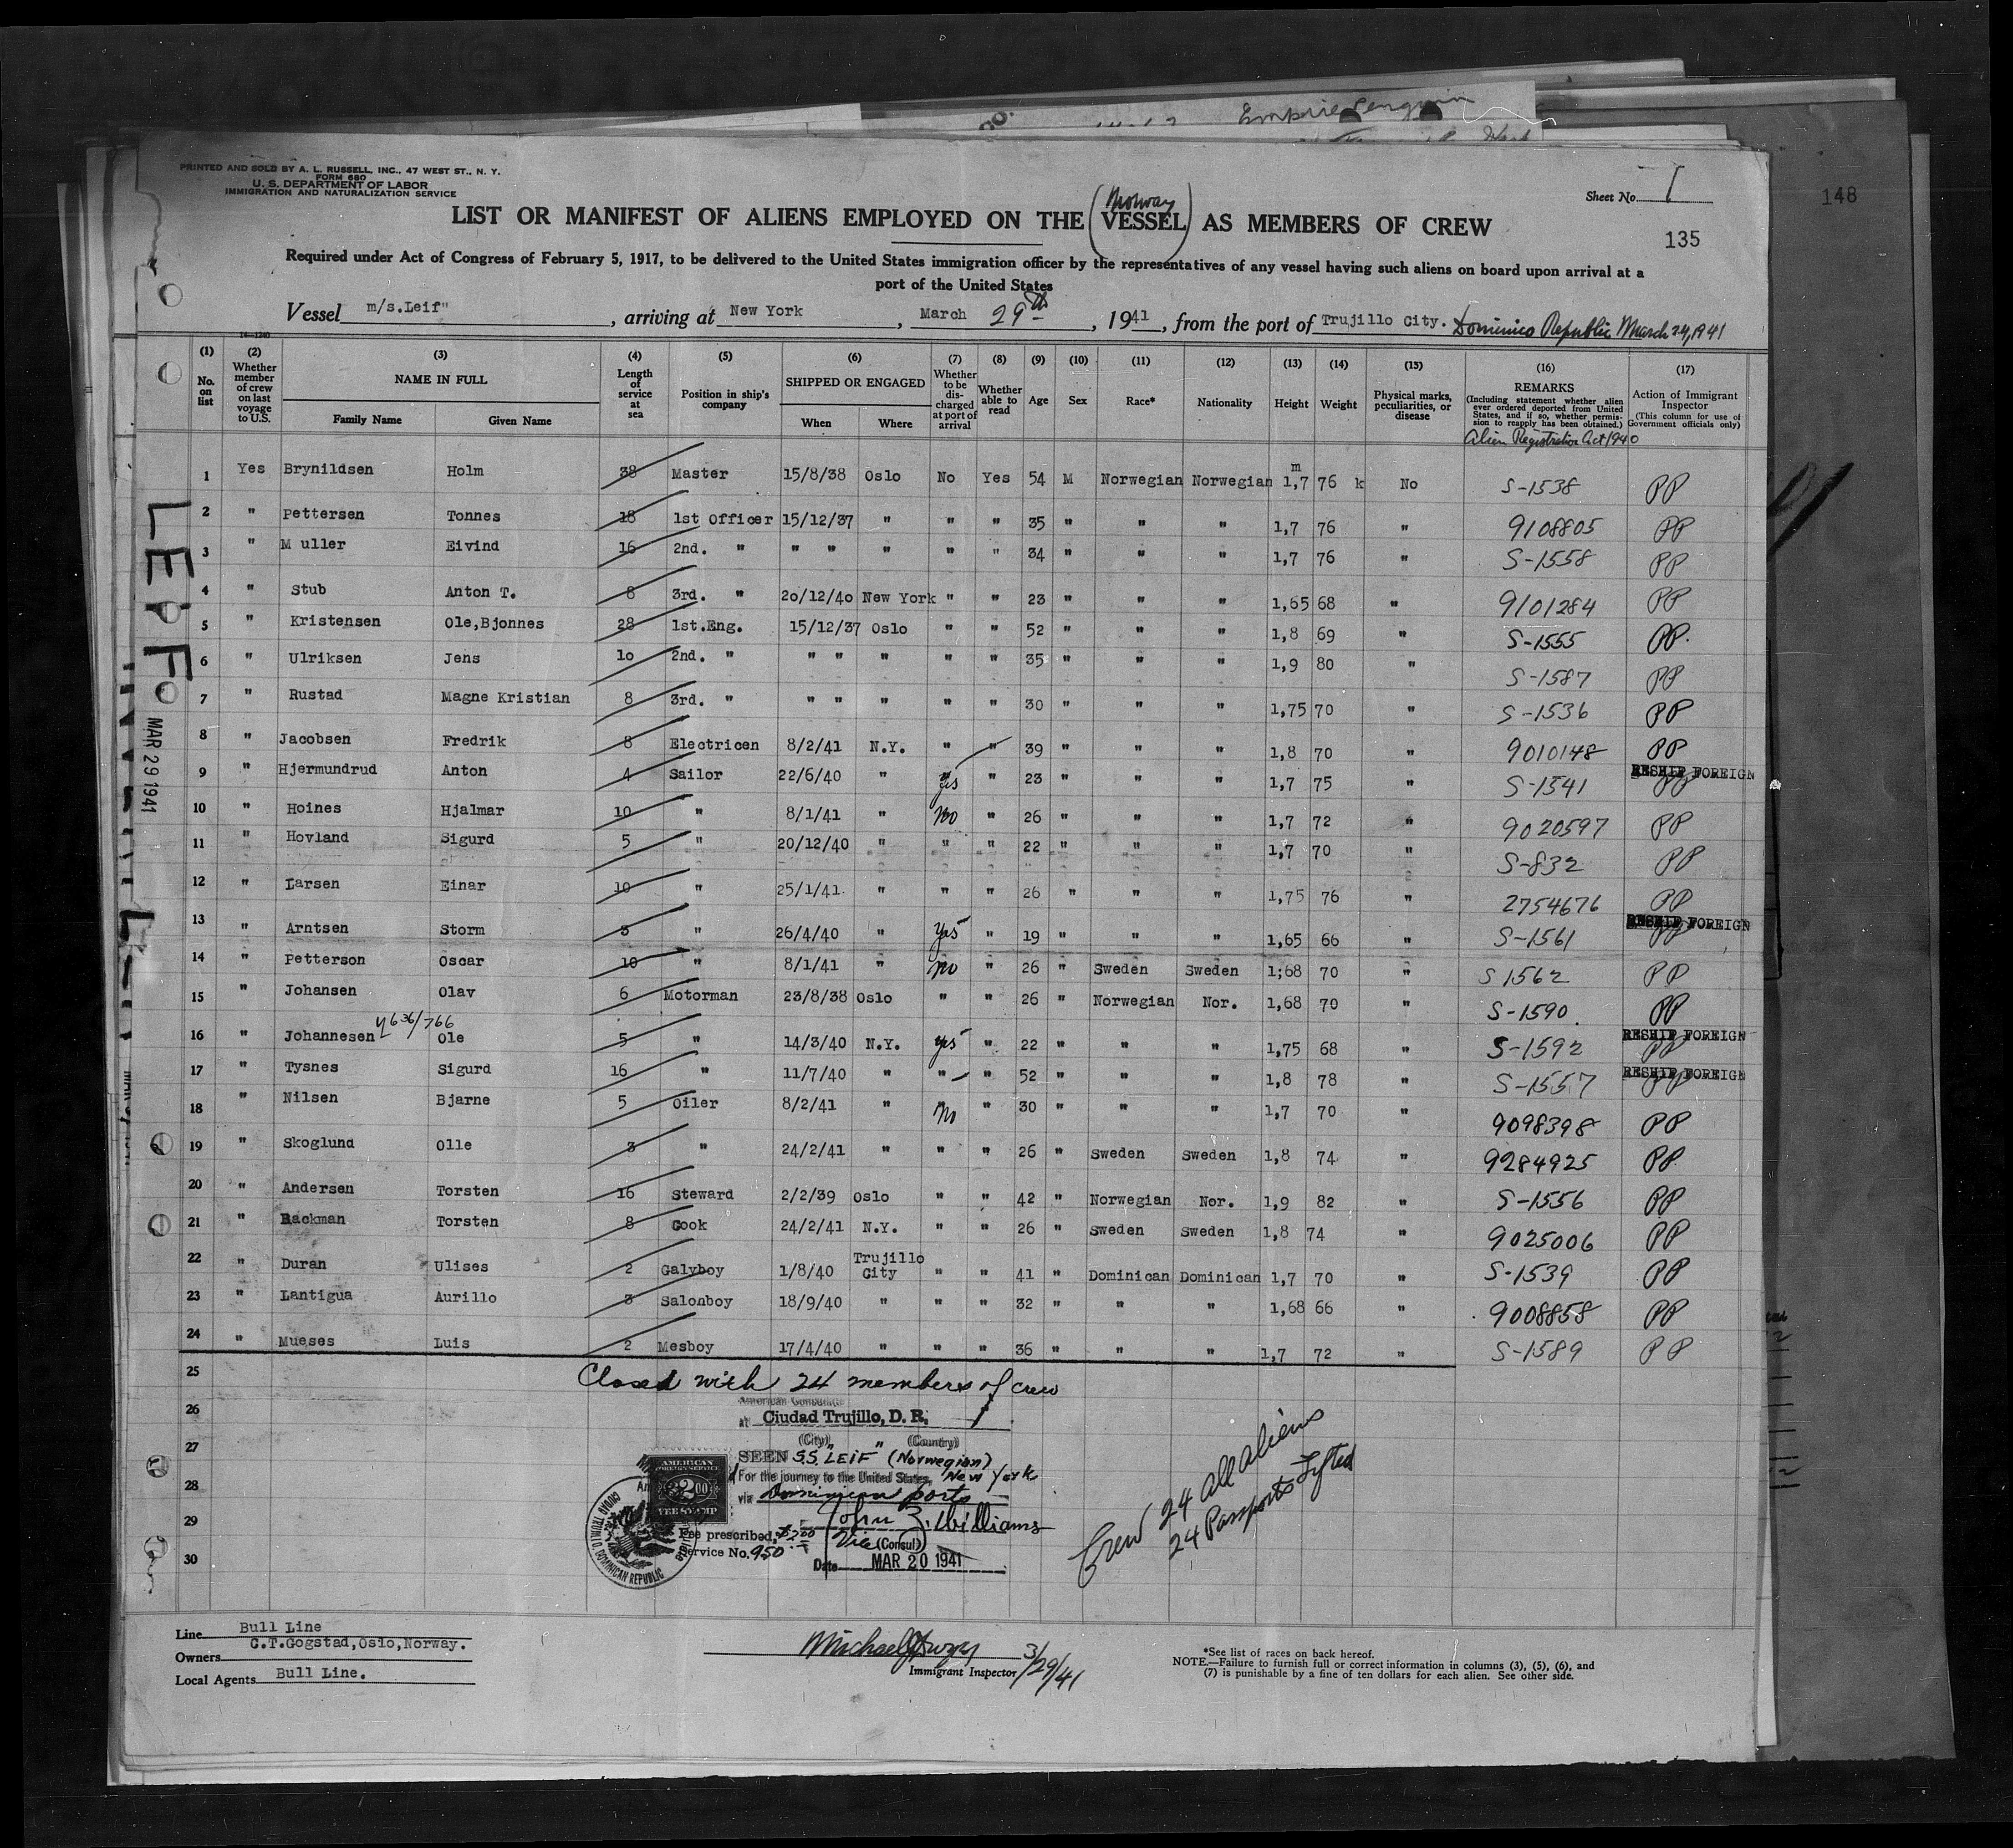 Empire Penguin
148
PRINTED AND SOLD BY A. L. RUSSELL, INC., 47 WEST ST., N. Y.
FORM 680
U. S. DEPARTMENT OF LABOR
IMMIGRATION AND NATURALIZATION SERVICE
Sheet No. 1
Norway
LIST OR MANIFEST OF ALIENS EMPLOYED ON THE (VESSEL) AS MEMBERS OF CREW
135
Required under Act of Congress of February 5, 1917, to be delivered to the United States immigration officer by the representatives of any vessel having such aliens on board upon arrival at a
port of the United States
Vessel m/s.Leif" , arriving at New York , March 29th , 1941 , from the port of Trujillo City. Dominico Republic March 24, 1941
(1) No. on list (2) Whether member of crew on last voyage to U.S. (3) NAME IN FULL Family Name Given Name (4) Length of service at sea (5) Position in ship's company (6) SHIPPED OR ENGAGED When Where (7) Whether to be discharged at port of arrival (8) Whether able to read (9) Age (10) Sex (11) Race* (12) Nationality (13) Height (14) Weight (15) Physical marks, peculiarities, or disease (16) REMARKS (Including statement whether alien ever ordered deported from United States, and if so, whether permission to reapply has been obtained.) (17) Action of Immigrant Inspector (This column for use of Government officials only)
Alien Registration Act 1940
1 Yes Brynildsen Holm 38 Master 15/8/38 Oslo No Yes 54 M Norwegian Norwegian m 1,7 76 k No S-1538 PP
2 " Pettersen Tonnes 18 1st Officer 15/12/37 " " " 35 " " " 1,7 76 " 9108805 PP
3 " M uller Eivind 16 2nd. " " " " " " 34 " " " 1,7 76 " S-1558 PP
4 " Stub Anton T. 8 3rd. " 20/12/40 New York " " 23 " " " 1,65 68 " 9101284 PP
5 " Kristensen Ole,Bjonnes 28 1st.Eng. 15/12/37 Oslo " " 52 " " " 1,8 69 " S-1555 PP.
6 " Ulriksen Jens 1o 2nd. " " " " " " 35 " " " 1,9 80 " S-1587 PP
7 " Rustad Magne Kristian 8 3rd. " " " " " " 30 " " " 1,75 70 " S-1536 PP
8 " Jacobsen Fredrik 8 Electricen 8/2/41 N.Y. " " 39 " " " 1,8 70 " 9010148 PP
9 " Hjermundrud Anton 4 Sailor 22/6/40 " yes " 23 " " " 1,7 75 " S-1541 PP RESHIP FOREIGN
10 " Hoines Hjalmar 10 " 8/1/41 " No " 26 " " " 1,7 72 " 9020597 PP
11 " Hovland Sigurd 5 " 20/12/40 " " " 22 " " " 1,7 70 " S-832 PP
12 " Larsen Einar 10 " 25/1/41 " " " 26 " " " 1,75 76 " 2754676 PP
13 " Arntsen Storm 3 " 26/4/40 " yes " 19 " " " 1,65 66 " S-1561 PP RESHIP FOREIGN
14 " Petterson Oscar 10 " 8/1/41 " no " 26 " Sweden Sweden 1;68 70 " S 1562 PP
15 " Johansen Olav 6 Motorman 23/8/38 Oslo " " 26 " Norwegian Nor. 1,68 70 " S-1590 PP
16 " Johannesen 4636/766 Ole 5 " 14/3/40 N.Y. yes " 22 " " " 1,75 68 " S-1592 PP RESHIP FOREIGN
17 " Tysnes Sigurd 16 " 11/7/40 " " " 52 " " " 1,8 78 " S-1557 PP RESHIP FOREIGN
18 " Nilsen Bjarne 5 Oiler 8/2/41 " No " 30 " " " 1,7 70 " 9098398 PP
19 " Skoglund Olle 3 " 24/2/41 " " " 26 " Sweden Sweden 1,8 74 " 9284925 PP
20 " Andersen Torsten 16 Steward 2/2/39 Oslo " " 42 " Norwegian Nor. 1,9 82 " S-1556 PP
21 " Backman Torsten 8 Cook 24/2/41 N.Y. " " 26 " Sweden Sweden 1,8 74 " 9025006 PP
22 " Duran Ulises 2 Galyboy 1/8/40 Trujillo City " " 41 " Dominican Dominican 1,7 70 " S-1539 PP
23 " Lantigua Aurillo 3 Salonboy 18/9/40 " " " 32 " " " 1,68 66 " 9008858 PP
24 " Mueses Luis 2 Mesboy 17/4/40 " " " 36 " " " 1,7 72 " S-1589 PP
25
26
27
28
29
30
LEIF
MAR 29 1941
Closed with 24 members of crew
American Consulate
at Ciudad Trujillo, D. R.
(City) (Country)
SEEN S.S. "LEIF" (Norwegian)
For the journey to the United States, New York
via Dominican ports
John Z. Williams
Vice (Consul)
Fee prescribed, $2.00
Service No. 950
Date MAR 20 1941
AMERICAN
FOREIGN SERVICE
$2.00
FEE STAMP
CIUDAD TRUJILLO, DOMINICAN REPUBLIC
Crew 24 all aliens
24 Passports Lifted
Line Bull Line
Owners C.T.Gogstad,Oslo,Norway.
Local Agents Bull Line.
Michael 3/29/41
Immigrant Inspector
*See list of races on back hereof.
NOTE.—Failure to furnish full or correct information in columns (3), (5), (6), and
(7) is punishable by a fine of ten dollars for each alien. See other side.